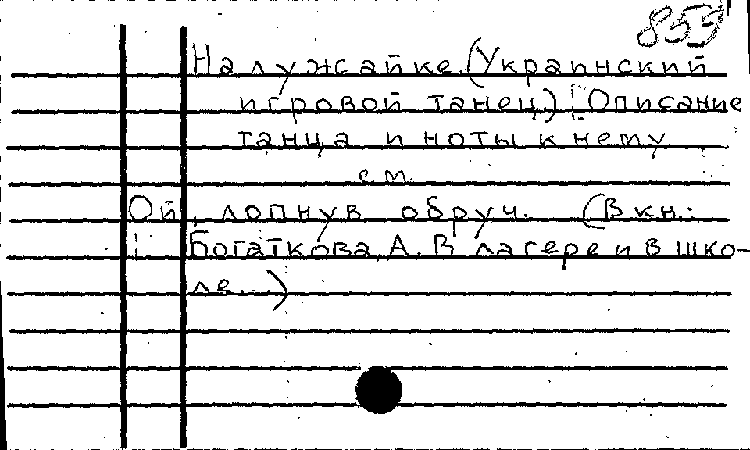 855
На лужайке. (Украинский
игровой танец) Описание
танца и ноты к нему
см.
Ой, лопнув обруч. (В кн.:
Богаткова, А. В лагере и в шко-
ле...)